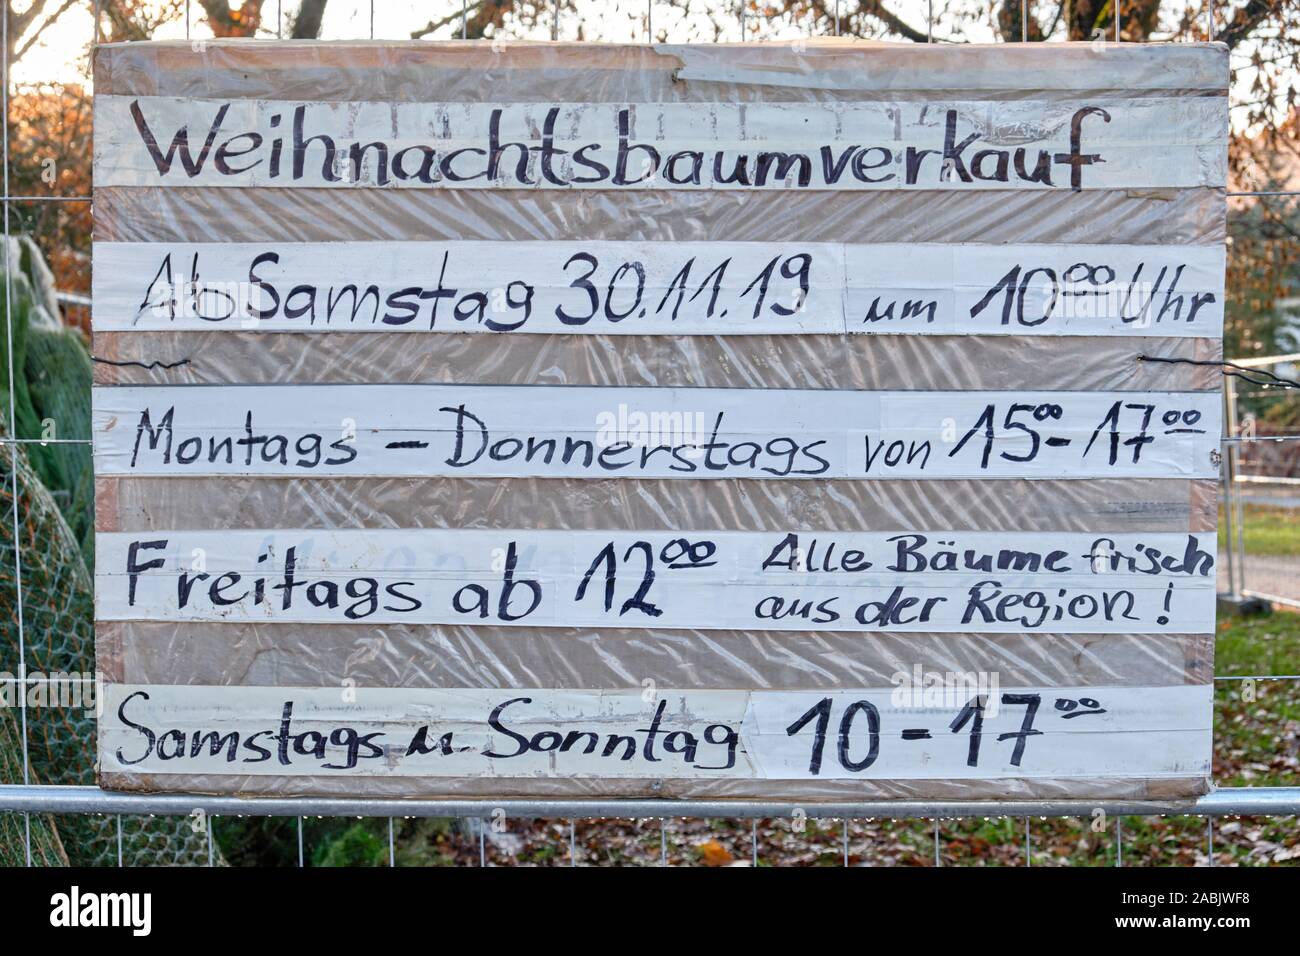 Weihnachtsbaumverkauf
Ab Samstag 30.11.19 um 10⁰⁰ Uhr
Montags - Donnerstags von 15⁰⁰-17⁰⁰
Freitags ab 12⁰⁰ Alle Bäume frisch
aus der Region!
Samstags u. Sonntag 10-17⁰⁰
alamy
Image ID: 2ABJWF8
www.alamy.com